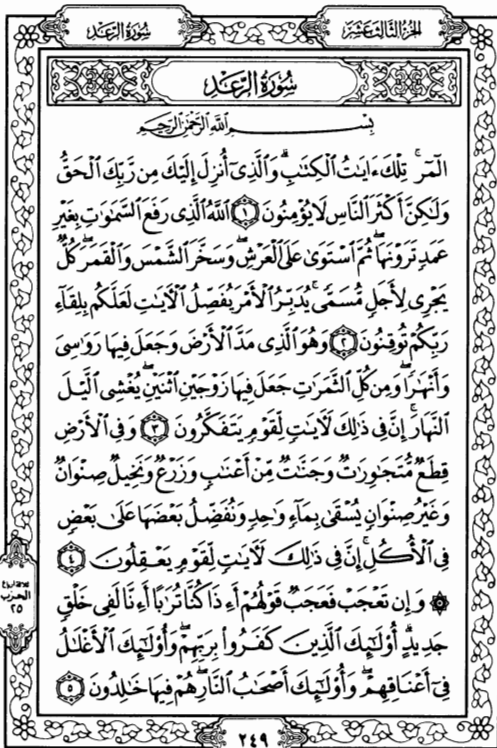 الجزء الثالث عشر
سورة الرعد
سورة الرعد
بسم الله الرحمن الرحيم
الٓمٓرۚ تِلْكَ ءَايَٰتُ ٱلْكِتَٰبِۗ وَٱلَّذِىٓ أُنزِلَ إِلَيْكَ مِن رَّبِّكَ ٱلْحَقُّ
وَلَٰكِنَّ أَكْثَرَ ٱلنَّاسِ لَا يُؤْمِنُونَ ١ ٱللَّهُ ٱلَّذِى رَفَعَ ٱلسَّمَٰوَٰتِ بِغَيْرِ
عَمَدٍ تَرَوْنَهَاۖ ثُمَّ ٱسْتَوَىٰ عَلَى ٱلْعَرْشِۖ وَسَخَّرَ ٱلشَّمْسَ وَٱلْقَمَرَۖ كُلٌّ
يَجْرِى لِأَجَلٍ مُّسَمًّىۚ يُدَبِّرُ ٱلْأَمْرَ يُفَصِّلُ ٱلْءَايَٰتِ لَعَلَّكُم بِلِقَآءِ
رَبِّكُمْ تُوقِنُونَ ٢ وَهُوَ ٱلَّذِى مَدَّ ٱلْأَرْضَ وَجَعَلَ فِيهَا رَوَٰسِىَ
وَأَنْهَٰرًاۖ وَمِن كُلِّ ٱلثَّمَرَٰتِ جَعَلَ فِيهَا زَوْجَيْنِ ٱثْنَيْنِۖ يُغْشِى ٱلَّيْلَ
ٱلنَّهَارَۚ إِنَّ فِى ذَٰلِكَ لَءَايَٰتٍ لِّقَوْمٍ يَتَفَكَّرُونَ ٣ وَفِى ٱلْأَرْضِ
قِطَعٌ مُّتَجَٰوِرَٰتٌ وَجَنَّٰتٌ مِّنْ أَعْنَٰبٍ وَزَرْعٌ وَنَخِيلٌ صِنْوَانٌ
وَغَيْرُ صِنْوَانٍ يُسْقَىٰ بِمَآءٍ وَٰحِدٍ وَنُفَضِّلُ بَعْضَهَا عَلَىٰ بَعْضٍ
فِى ٱلْأُكُلِۚ إِنَّ فِى ذَٰلِكَ لَءَايَٰتٍ لِّقَوْمٍ يَعْقِلُونَ ٤
۞ وَإِن تَعْجَبْ فَعَجَبٌ قَوْلُهُمْ أَءِذَا كُنَّا تُرَٰبًا أَءِنَّا لَفِى خَلْقٍ
جَدِيدٍۗ أُو۟لَٰٓئِكَ ٱلَّذِينَ كَفَرُوا۟ بِرَبِّهِمْۖ وَأُو۟لَٰٓئِكَ ٱلْأَغْلَٰلُ
فِىٓ أَعْنَاقِهِمْۖ وَأُو۟لَٰٓئِكَ أَصْحَٰبُ ٱلنَّارِۖ هُمْ فِيهَا خَٰلِدُونَ ٥
الحزب
٢٥
٢٤٩